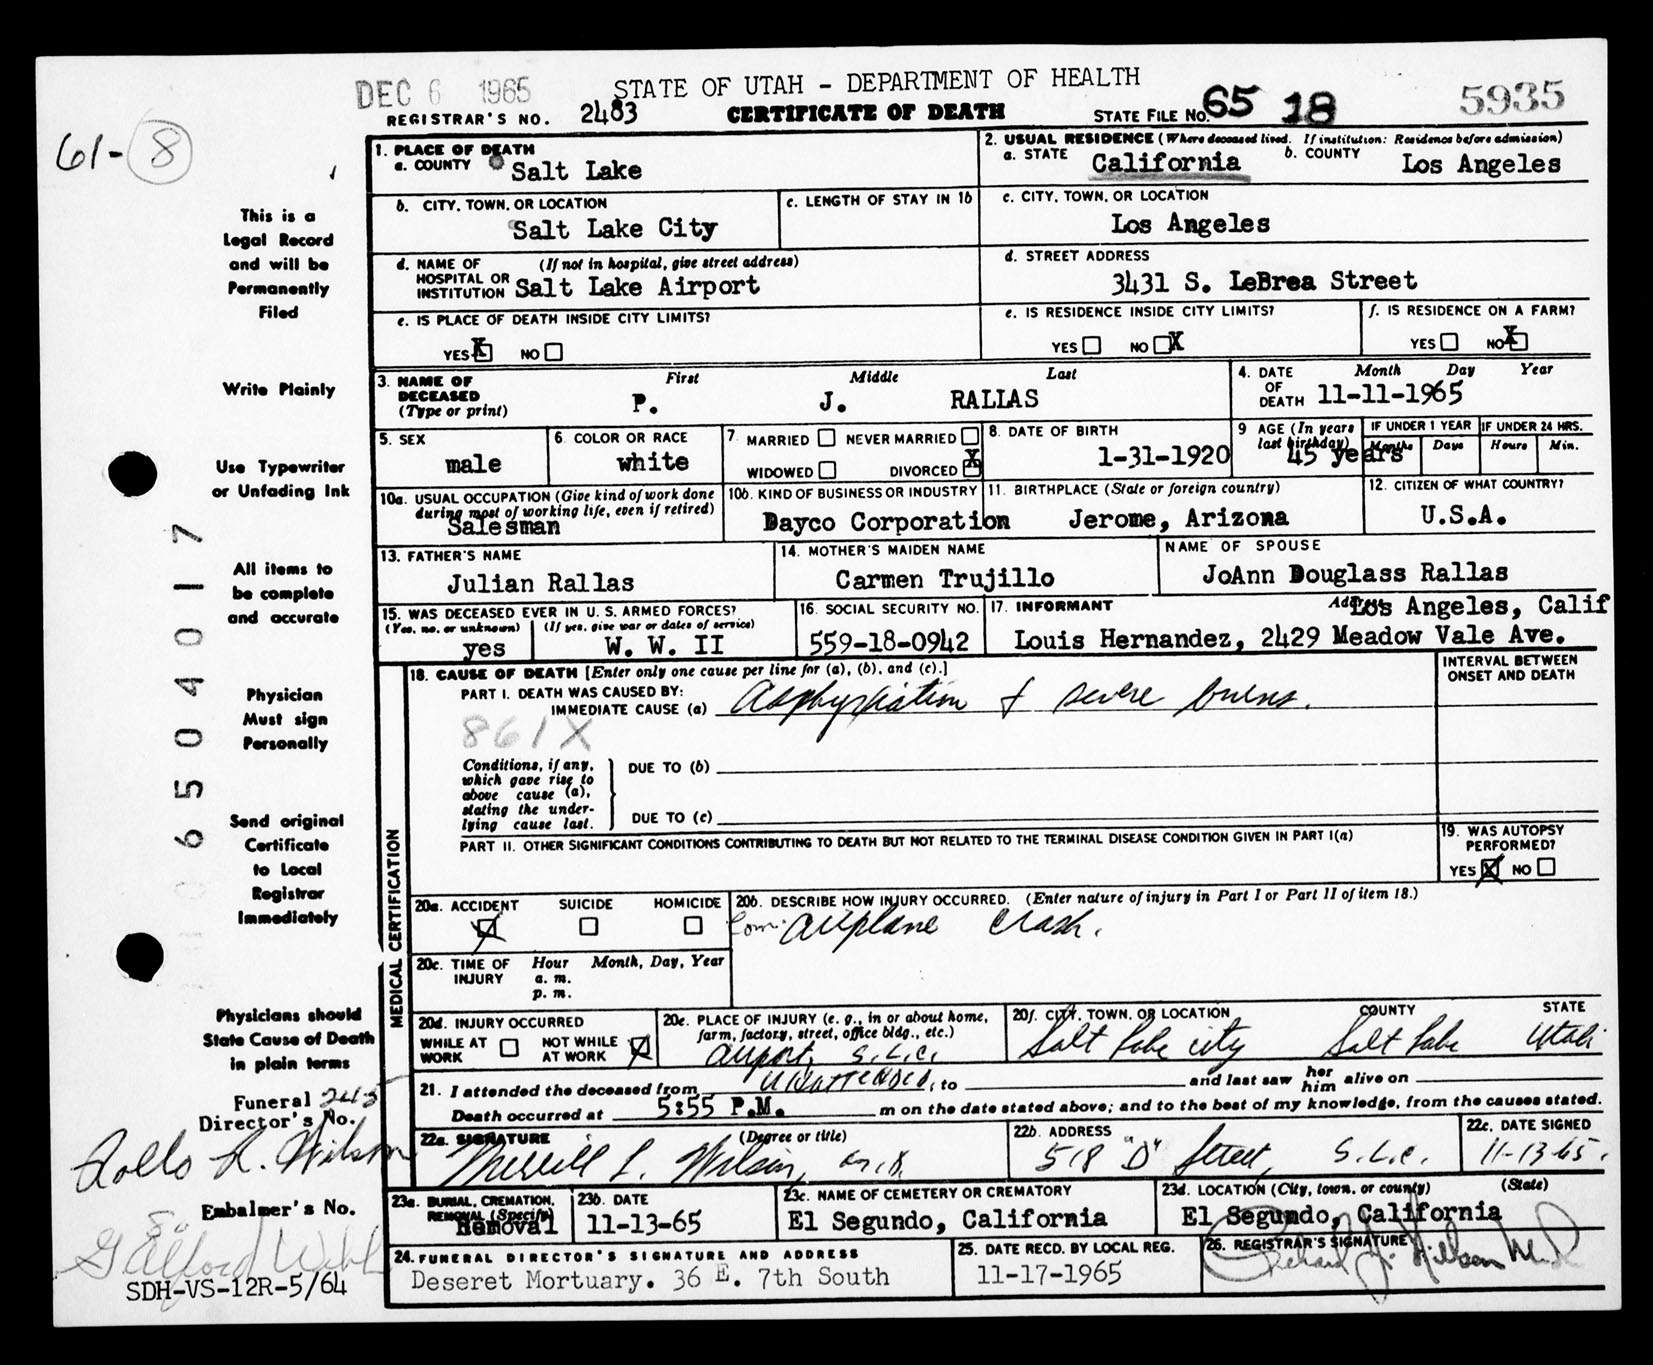 DEC 6 1965
STATE OF UTAH - DEPARTMENT OF HEALTH
REGISTRAR'S NO. 2483
CERTIFICATE OF DEATH
STATE FILE NO. 65 18 5935
61-8
This is a
Legal Record
and will be
Permanently
Filed
Write Plainly
Use Typewriter
or Unfading Ink
All items to
be complete
and accurate
Physician
Must sign
Personally
Send original
Certificate
to Local
Registrar
Immediately
Physicians should
State Cause of Death
in plain terms
Funeral 245
Director's No.
Rollo R. Wilson
Embalmer's No.
SDH-VS-12R-5/64
06504017
1. PLACE OF DEATH
a. COUNTY Salt Lake
2. USUAL RESIDENCE (Where deceased lived. If institution: Residence before admission)
a. STATE California b. COUNTY Los Angeles
b. CITY, TOWN, OR LOCATION
Salt Lake City
c. LENGTH OF STAY IN 1b
c. CITY, TOWN, OR LOCATION
Los Angeles
d. NAME OF (If not in hospital, give street address)
HOSPITAL OR
INSTITUTION Salt Lake Airport
d. STREET ADDRESS
3431 S. LeBrea Street
e. IS PLACE OF DEATH INSIDE CITY LIMITS?
YES X NO
e. IS RESIDENCE INSIDE CITY LIMITS?
YES NO X
f. IS RESIDENCE ON A FARM?
YES NO X
3. NAME OF DECEASED (Type or print)
First Middle Last
P. J. RALLAS
4. DATE OF DEATH
Month Day Year
11-11-1965
5. SEX
male
6. COLOR OR RACE
white
7. MARRIED NEVER MARRIED
WIDOWED DIVORCED X
8. DATE OF BIRTH
1-31-1920
9. AGE (In years last birthday)
45 years
IF UNDER 1 YEAR
Months Days
IF UNDER 24 HRS.
Hours Min.
10a. USUAL OCCUPATION (Give kind of work done
during most of working life, even if retired)
Salesman
10b. KIND OF BUSINESS OR INDUSTRY
Dayco Corporation
11. BIRTHPLACE (State or foreign country)
Jerome, Arizona
12. CITIZEN OF WHAT COUNTRY?
U.S.A.
13. FATHER'S NAME
Julian Rallas
14. MOTHER'S MAIDEN NAME
Carmen Trujillo
NAME OF SPOUSE
JoAnn Douglass Rallas
15. WAS DECEASED EVER IN U.S. ARMED FORCES?
(Yes, no, or unknown) (If yes, give war or dates of service)
yes W. W. II
16. SOCIAL SECURITY NO.
559-18-0942
17. INFORMANT Address
Los Angeles, Calif
Louis Hernandez, 2429 Meadow Vale Ave.
MEDICAL CERTIFICATION
18. CAUSE OF DEATH [Enter only one cause per line for (a), (b), and (c).]
PART I. DEATH WAS CAUSED BY:
IMMEDIATE CAUSE (a) Asphyxiation & severe burns.
861X
Conditions, if any,
which gave rise to
above cause (a),
stating the under-
lying cause last.
DUE TO (b)
DUE TO (c)
INTERVAL BETWEEN
ONSET AND DEATH
PART II. OTHER SIGNIFICANT CONDITIONS CONTRIBUTING TO DEATH BUT NOT RELATED TO THE TERMINAL DISEASE CONDITION GIVEN IN PART I(a)
19. WAS AUTOPSY
PERFORMED?
YES X NO
20a. ACCIDENT SUICIDE HOMICIDE
20b. DESCRIBE HOW INJURY OCCURRED. (Enter nature of injury in Part I or Part II of item 18.)
Com. airplane crash.
20c. TIME OF INJURY
Hour Month, Day, Year
a. m.
p. m.
20d. INJURY OCCURRED
WHILE AT WORK NOT WHILE AT WORK X
20e. PLACE OF INJURY (e. g., in or about home,
farm, factory, street, office bldg., etc.)
airport, S.L.C.
20f. CITY, TOWN, OR LOCATION COUNTY STATE
Salt Lake City Salt Lake Utah
21. I attended the deceased from unattended, to and last saw her him alive on
Death occurred at 5:55 P.M. m on the date stated above; and to the best of my knowledge, from the causes stated.
22a. SIGNATURE (Degree or title)
Merrill L. Wilson, M.D.
22b. ADDRESS
518 "D" Street, S.L.C.
22c. DATE SIGNED
11-13-65.
23a. BURIAL, CREMATION,
REMOVAL (Specify)
Removal
23b. DATE
11-13-65
23c. NAME OF CEMETERY OR CREMATORY
El Segundo, California
23d. LOCATION (City, town, or county) (State)
El Segundo, California
24. FUNERAL DIRECTOR'S SIGNATURE AND ADDRESS
Deseret Mortuary. 36 E. 7th South
25. DATE RECD. BY LOCAL REG.
11-17-1965
26. REGISTRAR'S SIGNATURE